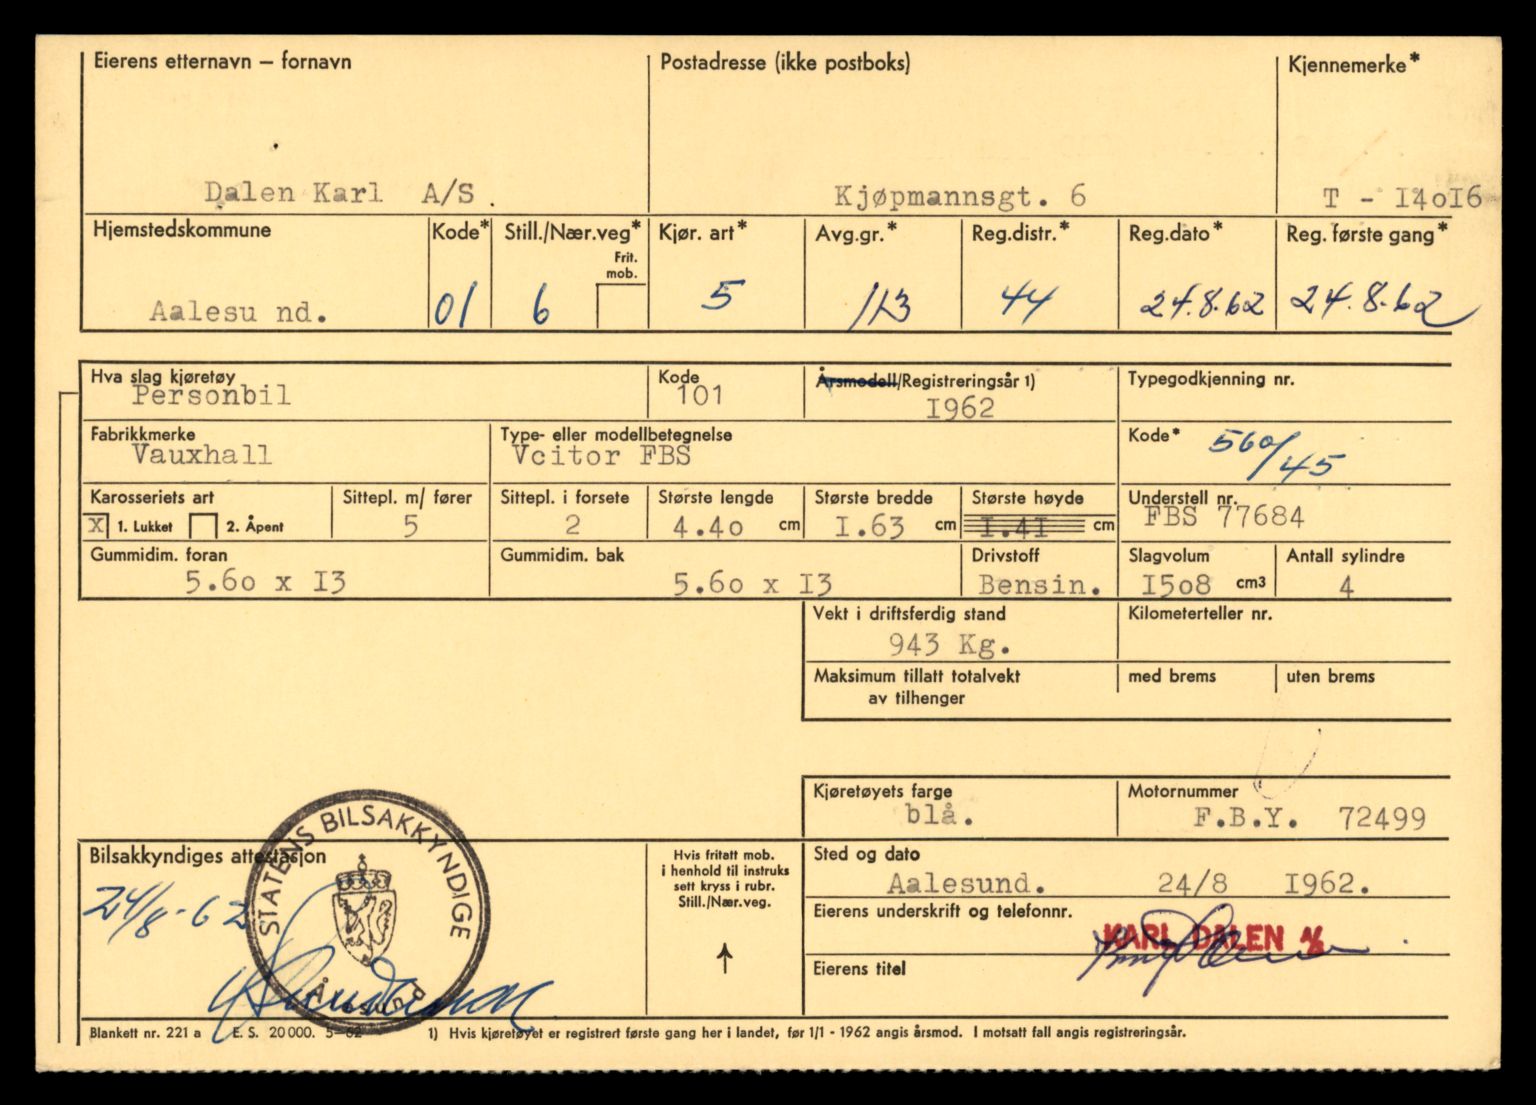 Eierens etternavn – fornavn Postadresse (ikke postboks) Kjennemerke*
Dalen Karl A/S . Kjøpmannsgt. 6 T - I4oI6
Hjemstedskommune Kode* Still./Nær.veg* Kjør. art* Avg.gr.* Reg.distr.* Reg.dato* Reg. første gang*
Frit.
mob.
Aalesu nd. 01 6 5 113 44 24.8.62 24.8.62
Hva slag kjøretøy Kode Årsmodell/Registreringsår 1) Typegodkjenning nr.
Personbil 101 I962
Fabrikkmerke Type- eller modellbetegnelse Kode* 560/45
Vauxhall Vcitor FBS
Karosseriets art Sittepl. m/ fører Sittepl. i forsete Største lengde Største bredde Største høyde Understell nr.
X 1. Lukket 2. Åpent 5 2 4.4o cm I.63 cm I.4I cm FBS 77684
Gummidim. foran Gummidim. bak Drivstoff Slagvolum Antall sylindre
5.6o x I3 5.6o x I3 Bensin. I5o8 cm3 4
Vekt i driftsferdig stand Kilometerteller nr.
943 Kg.
Maksimum tillatt totalvekt med brems uten brems
av tilhenger
Kjøretøyets farge Motornummer
blå. F.B.Y. 72499
Bilsakkyndiges attestasjon
24/8-62
STATENS BILSAKKYNDIGE
Ålesund
Hvis fritatt mob.
i henhold til instruks
sett kryss i rubr.
Still./Nær.veg.
Sted og dato
Aalesund. 24/8 I962.
Eierens underskrift og telefonnr.
KARL DALEN A/S
Eierens titel
Blankett nr. 221 a E. S. 20 000. 5–62 1) Hvis kjøretøyet er registrert første gang her i landet, før 1/1 - 1962 angis årsmod. I motsatt fall angis registreringsår.